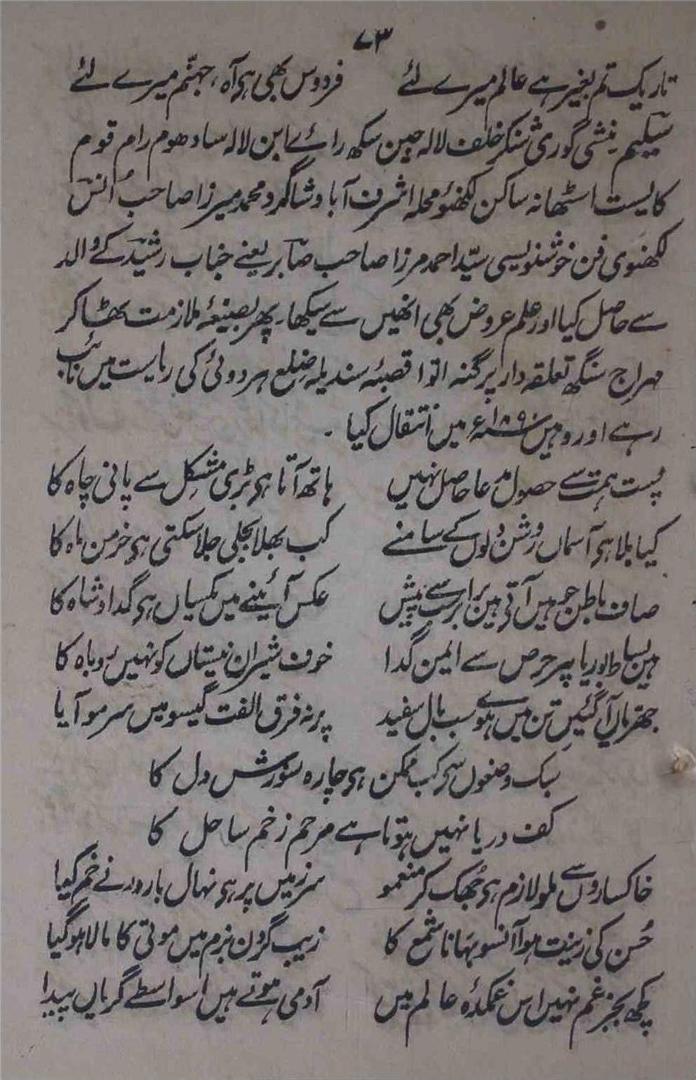 ۷۳
تاریک تم بغیر ہے عالم میرے لئے فردوس بھی ہر آہ، جہنّم میرے لئے
منشی گوری شنکر خلف لالہ چین سکھ رائے ابن لالہ سادھورام قوم
کایست استھانہ ساکن لکھنؤ محلہ اشرف آباد شاگرد محمد میرزا صاحب اُنس
لکھنوی فن خوشنویسی سیّد احمد مرزا صاحب صابر یعنے جناب رشید کے والد
سے حاصل کیا اور علم عروض بھی انھیں سے سیکھا۔ پھر بصیغۂ ملازمت ٹھاکر
مہراج سنگھ تعلقہ دار پرگنہ اتوا قصبۂ سندیلہ ضلع ہردوئی کی ریاست میں نائب
رہے اور وہیں ۱۸۹۰ء میں انتقال کیا ۔
پست ہمت سے حصول مدعا حاصل نہیں ہاتھ آتا ہی بڑی مشکل سے پانی چاہ کا
کیا بلا ہی آسماں روشن دلوں کے سامنے کب بھلا بجلی جلا سکتی ہی خرمن ماہ کا
صاف باطن جو ہیں آتی ہین برابر سب سے پیش عکس آئینے میں یکساں ہی گدا و شاہ کا
ہین بساط بوریا پر حرص سے ایمن گدا خوف شیران نیستاں کو نہیں روباہ کا
جھریاں آگئیں تن میں ہوے سب بال سفید پر نہ فرق الفت گیسو میں سر مو آیا
سبک وضعوں سے کب ممکن ہی چارہ سوزش دل کا
کف دریا نہیں ہوتا ہے مرحم زخم ساحل کا
خاکساروں سے ملو لازم ہی جھک کر منعمو سر زمیں پر ہی نہال بارور نے خم کیا
حُسن کی زینت ہوا آنسو بہانا شمع کا زیب گردن بزم میں موتی کا مالا ہو گیا
کچھ بجز غم نہیں اس غمکدۂ عالم میں آدمی ہوتے ہیں اسواسطے گریاں پیدا